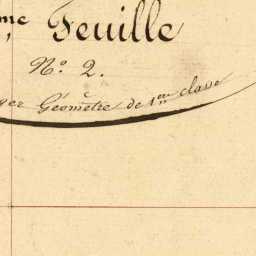 me Feuille
N.º 2.
ger Géomètre de 1ere classe